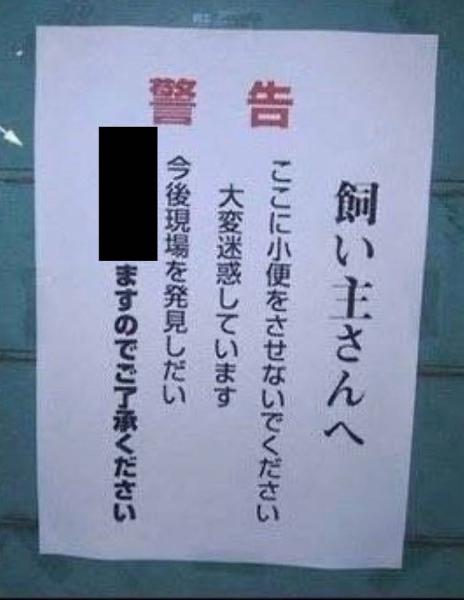 警告
飼い主さんへ
ここに小便をさせないでください
大変迷惑しています
今後現場を発見しだい
ますのでご了承ください